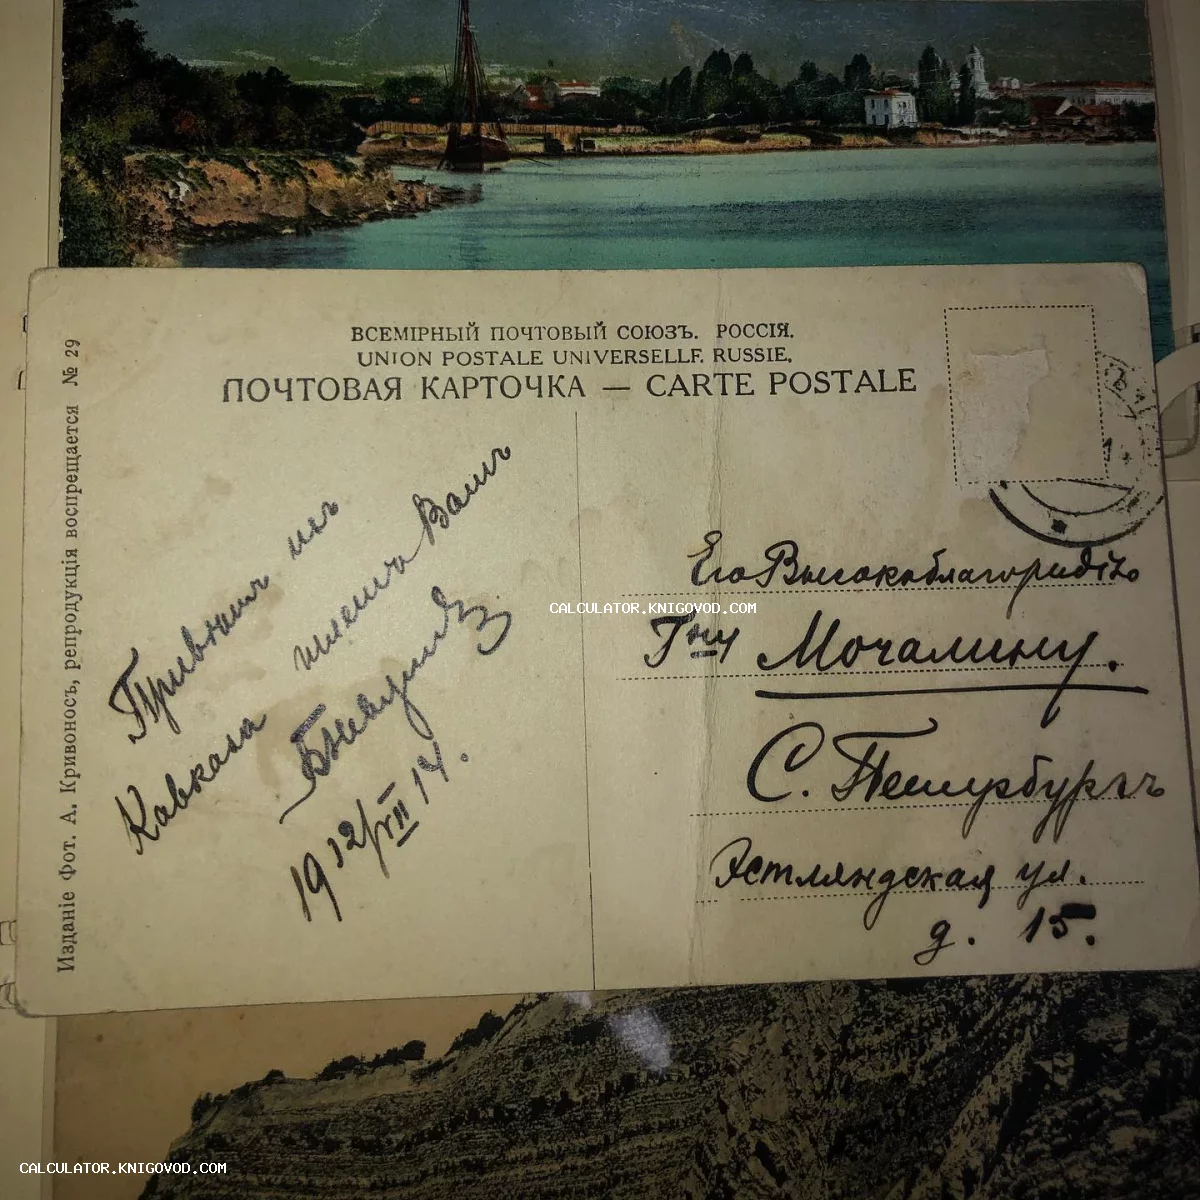 ВСЕМІРНЫЙ ПОЧТОВЫЙ СОЮЗЪ. РОССІЯ.
UNION POSTALE UNIVERSELLE. RUSSIE.
ПОЧТОВАЯ КАРТОЧКА — CARTE POSTALE
Изданіе Фот. А. Кривоносъ, репродукція воспрещается № 29
Привѣтъ изъ
Кавказа шлетъ Вамъ
1912/VII 14.
Его Высокоблагородію
Гну Мочалину.
С. Петербургъ
Эстляндская ул.
д. 15.
CALCULATOR.KNIGOVOD.COM
CALCULATOR.KNIGOVOD.COM